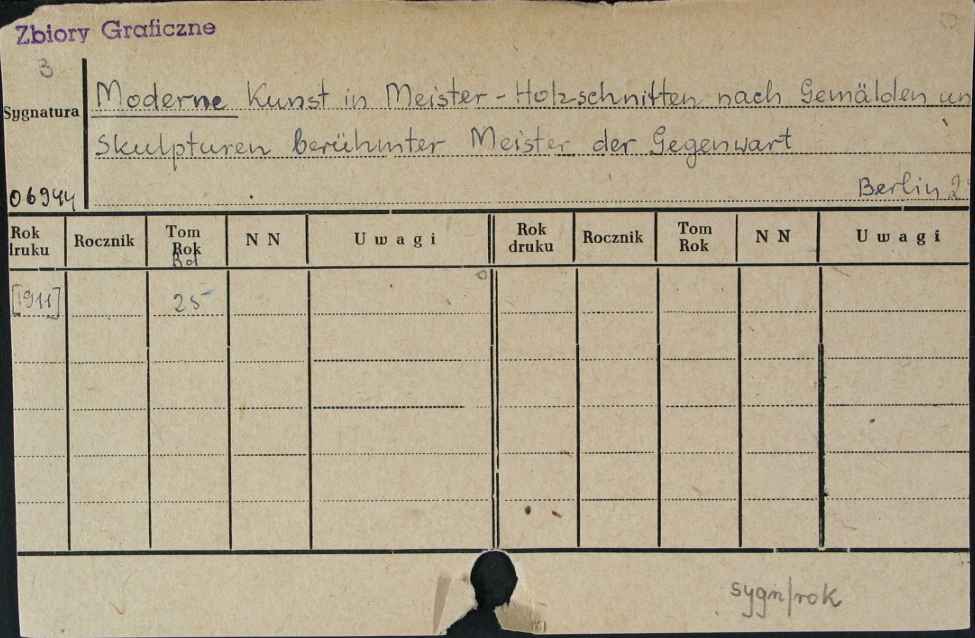 Zbiory Graficzne
3
Sygnatura
Moderne Kunst in Meister-Holzschnitten nach Gemälden un
Skulpturen berühmter Meister der Gegenwart
06944
Berlin 2
Rok druku Rocznik Tom Rok NN Uwagi Rok druku Rocznik Tom Rok NN Uwagi
[1911] 25
sygn/rok